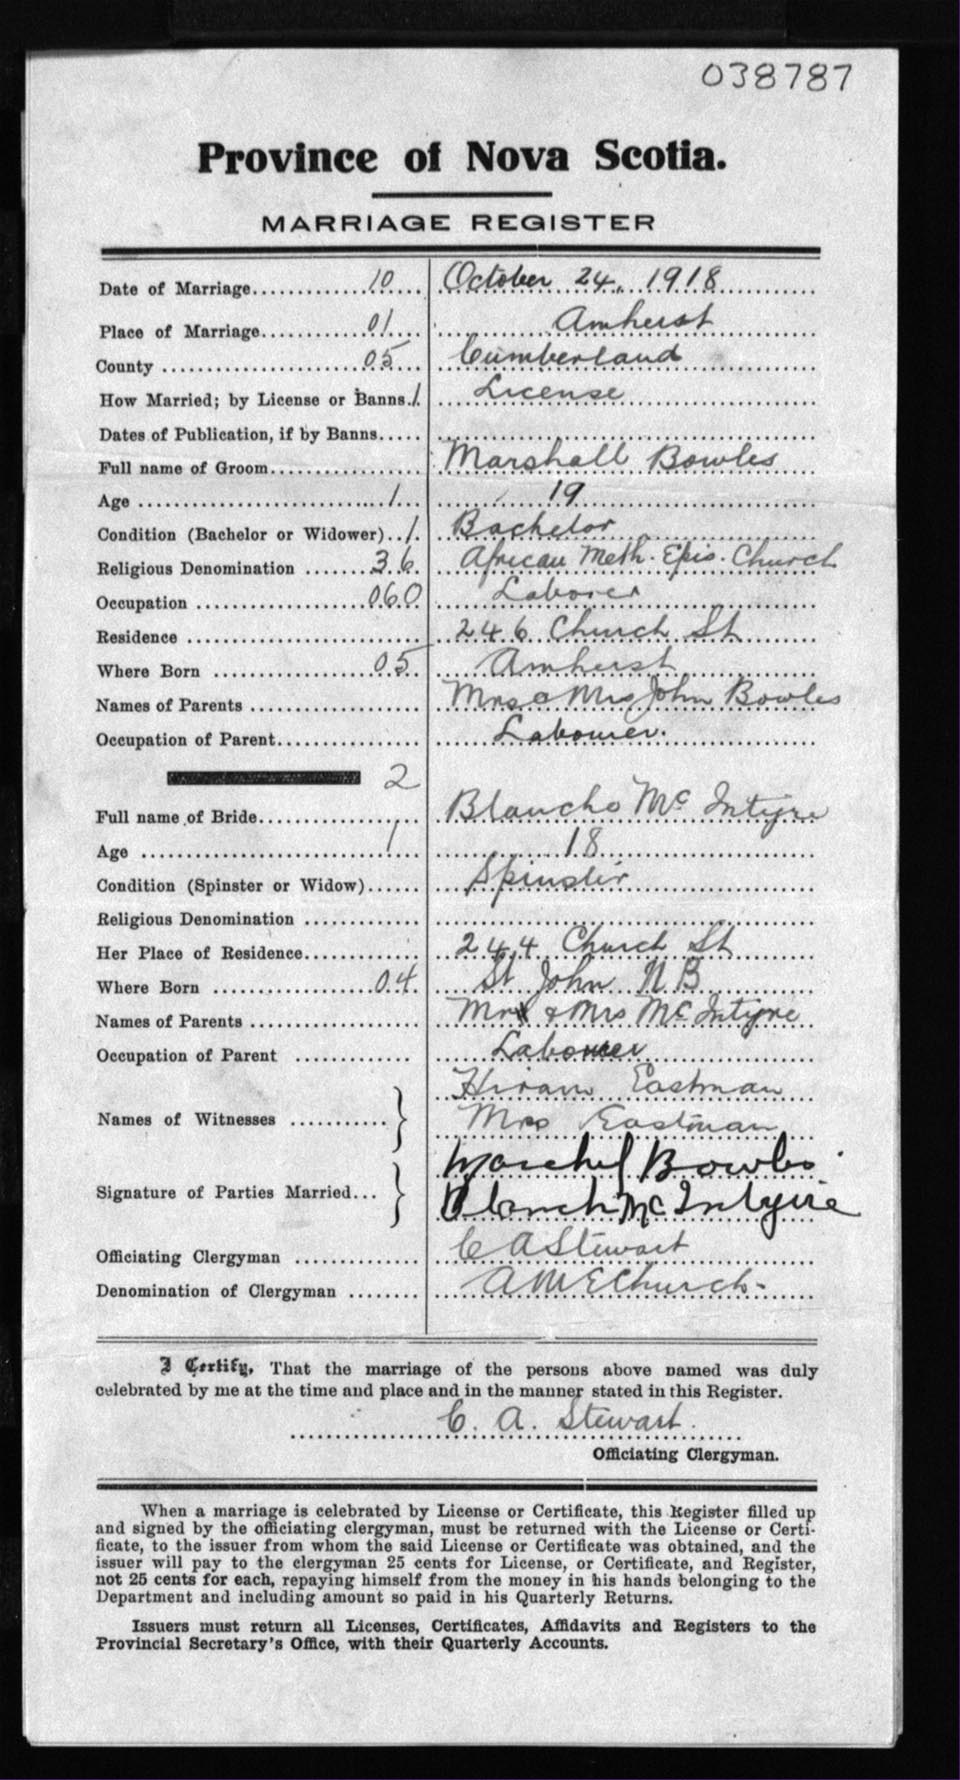 038787
Province of Nova Scotia.
MARRIAGE REGISTER
Date of Marriage 10 October 24, 1918
Place of Marriage 01 Amherst
County 05 Cumberland
How Married; by License or Banns 1 License
Dates of Publication, if by Banns
Full name of Groom Marshall Bowles
Age 1 19
Condition (Bachelor or Widower) 1 Bachelor
Religious Denomination 36 African Meth. Epis. Church
Occupation 060 Laborer
Residence 246 Church St
Where Born 05 Amherst
Names of Parents Mr & Mrs John Bowles
Occupation of Parent Labourer.
2
Full name of Bride Blanche Mc Intyre
Age 1 18
Condition (Spinster or Widow) Spinster
Religious Denomination
Her Place of Residence 244 Church St
Where Born 04 St John N.B
Names of Parents Mr & Mrs McIntyre
Occupation of Parent Labourer
Hiram Eastman
Names of Witnesses
Mrs Eastman
Bowles
Signature of Parties Married
Blanch McIntyire
Officiating Clergyman C A Stewart
Denomination of Clergyman A M E Church-
I Certify, That the marriage of the persons above named was duly
celebrated by me at the time and place and in the manner stated in this Register.
C. A. Stewart.
Officiating Clergyman.
When a marriage is celebrated by License or Certificate, this Register filled up
and signed by the officiating clergyman, must be returned with the License or Certi-
ficate, to the issuer from whom the said License or Certificate was obtained, and the
issuer will pay to the clergyman 25 cents for License, or Certificate, and Register,
not 25 cents for each, repaying himself from the money in his hands belonging to the
Department and including amount so paid in his Quarterly Returns.
Issuers must return all Licenses, Certificates, Affidavits and Registers to the
Provincial Secretary's Office, with their Quarterly Accounts.